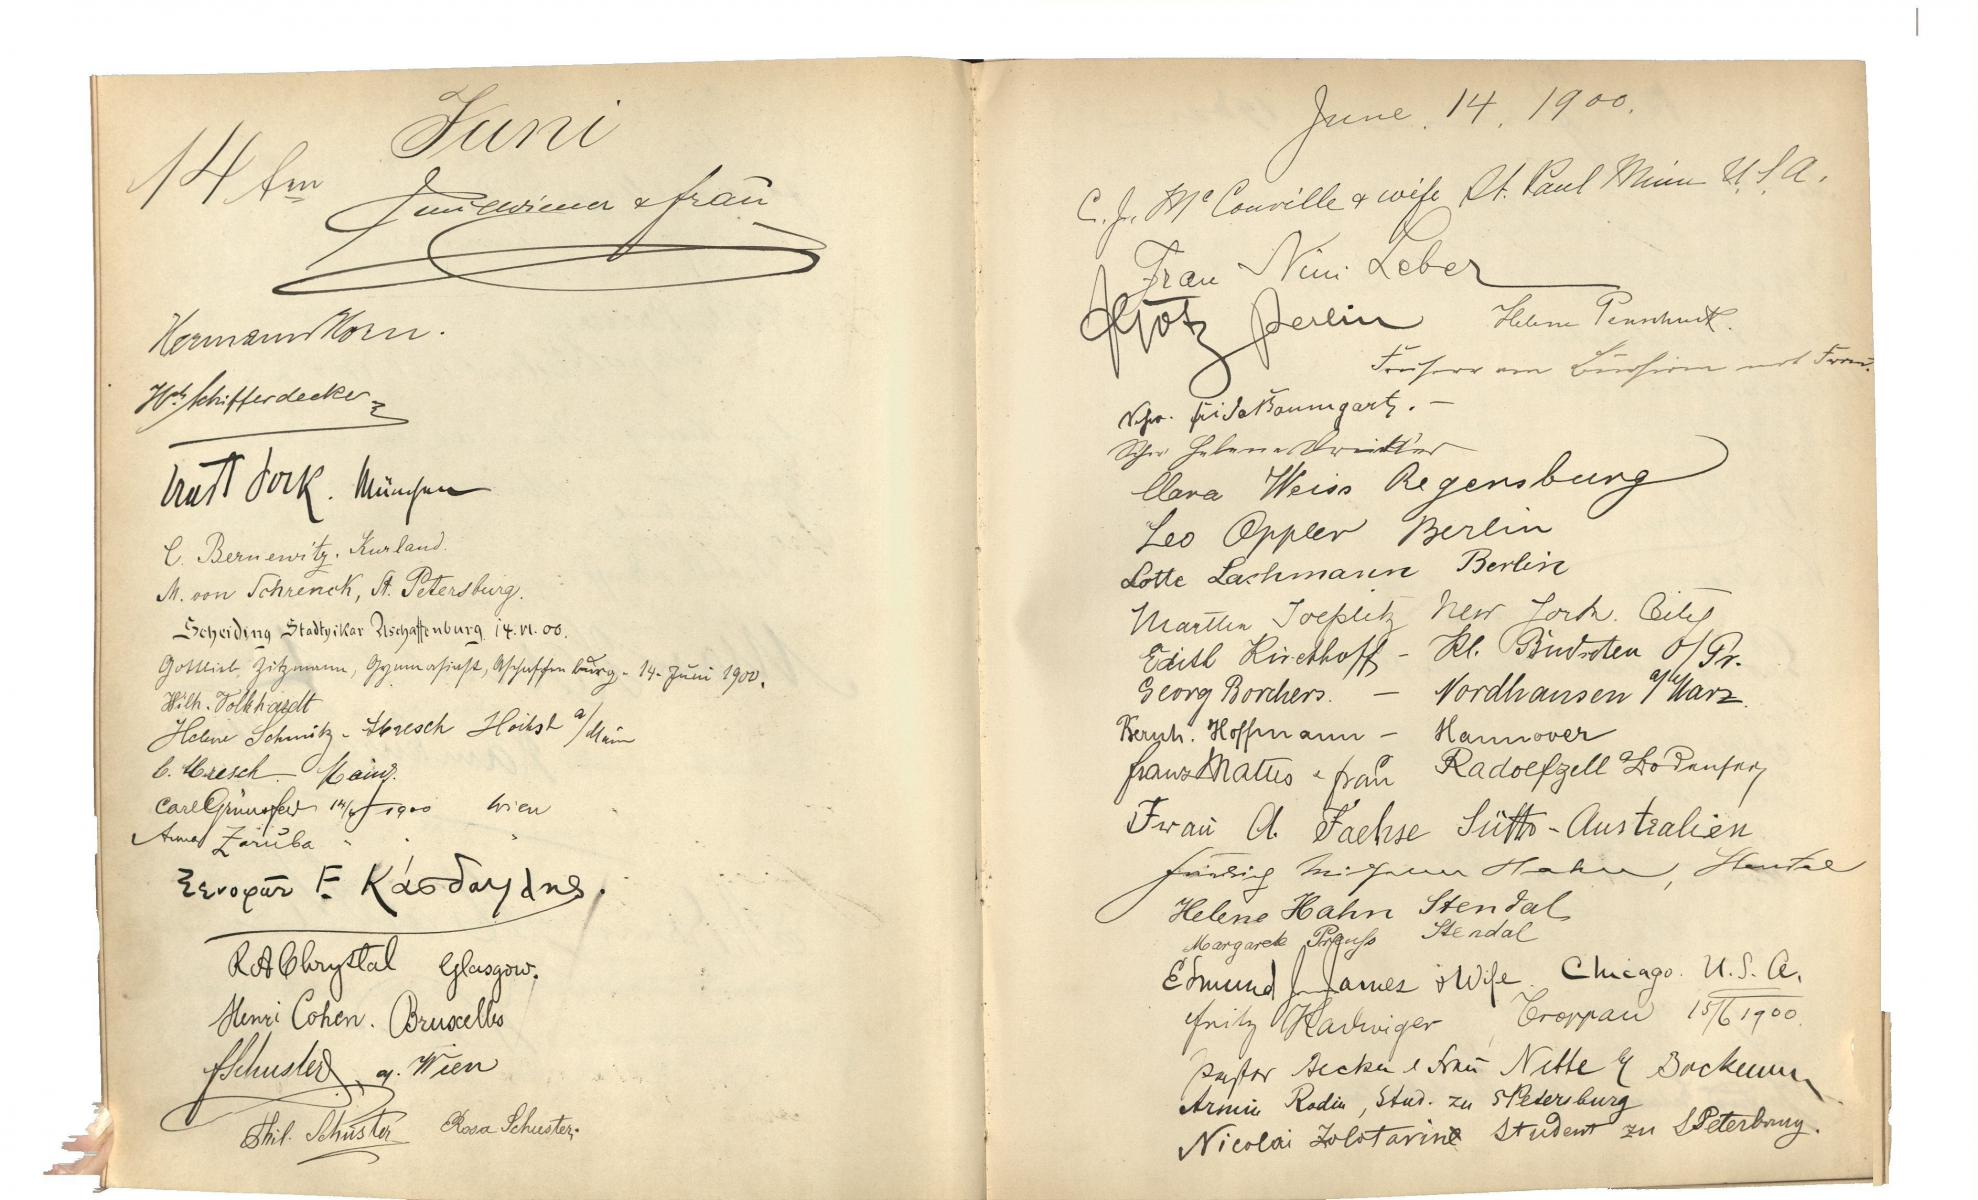 Juni
14ten
& Frau
Hermann Horn.
Schifferdecker
York. München
C. Bernewitz. Kurland.
M. von Schrenck, St. Petersburg.
Scheiding Stadtvikar Aschaffenburg 14.VI.00.
Gottlieb Zitzmann, Gymnasiast, Aschaffenburg - 14. Juni 1900.
Wilh. Volkhardt
Helene Schmitz - Abresch Höchst a/Main
C. Abresch - Mainz.
Carl 14/6 1900 Wien
Anna Zaruba " " "
Ξενοφῶν Ε Κάσδαγλης.
R A Chrystal Glasgow.
Henri Cohen. Bruxelles
Schuster a. Wien
Phil. Schuster Rosa Schuster.
June. 14. 1900.
C. J. McConville & wife St. Paul Minn U.S.A.
Frau Nini Leber
Götz Berlin Helene
Frida Baumgartz. -
Helene
Clara Weiss Regensburg
Leo Oppler Berlin
Lotte Lachmann Berlin
Martin Toeplitz New York. City
Edith Kirchhoff - Kl. O/Pr.
Georg Borchers. - Nordhausen a/Harz.
Bernh. Hoffmann - Hannover
Franz Mattes & Frau Radolfzell Bodensee
Frau A. Sachse Süd-Australien
Hahn, Stendal
Helene Hahn Stendal
Margarete Preuss Stendal
Edmund J James & Wife. Chicago. U.S.A.
Fritz Troppau 15/6 1900.
Pastor Becker & Frau Nette
Armin Rodin, Stud. zu SPetersburg
Nicolai Zolotarine Student zu SPetersburg.